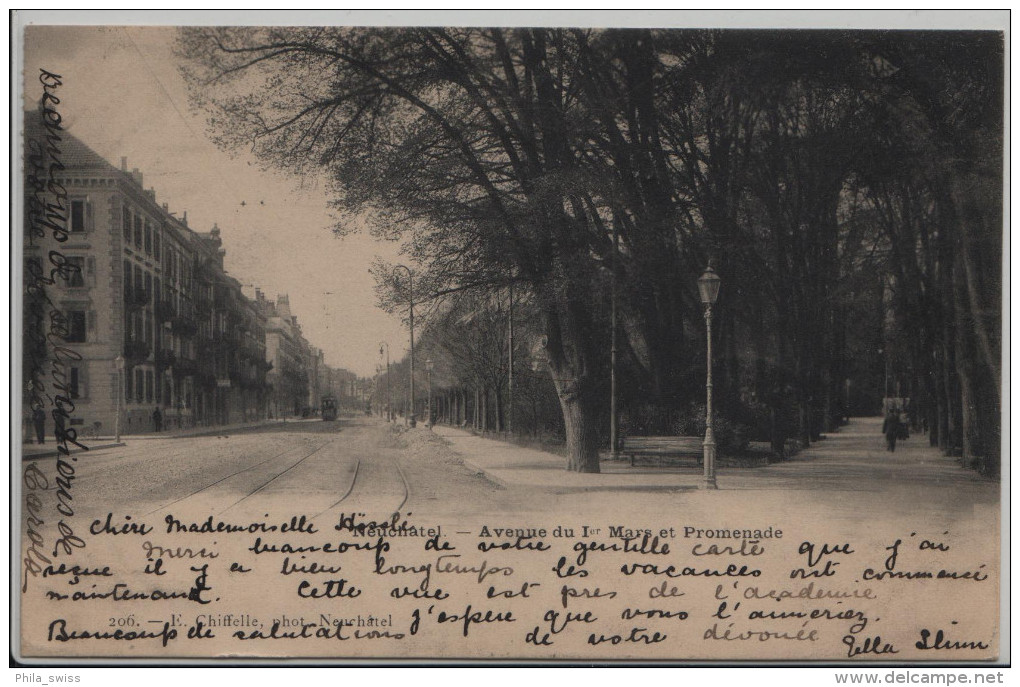 Beaucoup de salutations de
votre domestique
Carola
Neuchâtel. — Avenue du Ier Mars et Promenade
chère Mademoiselle Hössli.
Merci beaucoup de votre gentille carte que j'ai
reçue il y a bien longtemps les vacances ont commencé
maintenant. Cette vue est pres de l'académie
206. — E. Chiffelle, phot. Neuchâtel
j'espère que vous l'aimeriez.
Beaucoup de salutations de votre dévouée
Ella
Phila_swiss
www.delcampe.net